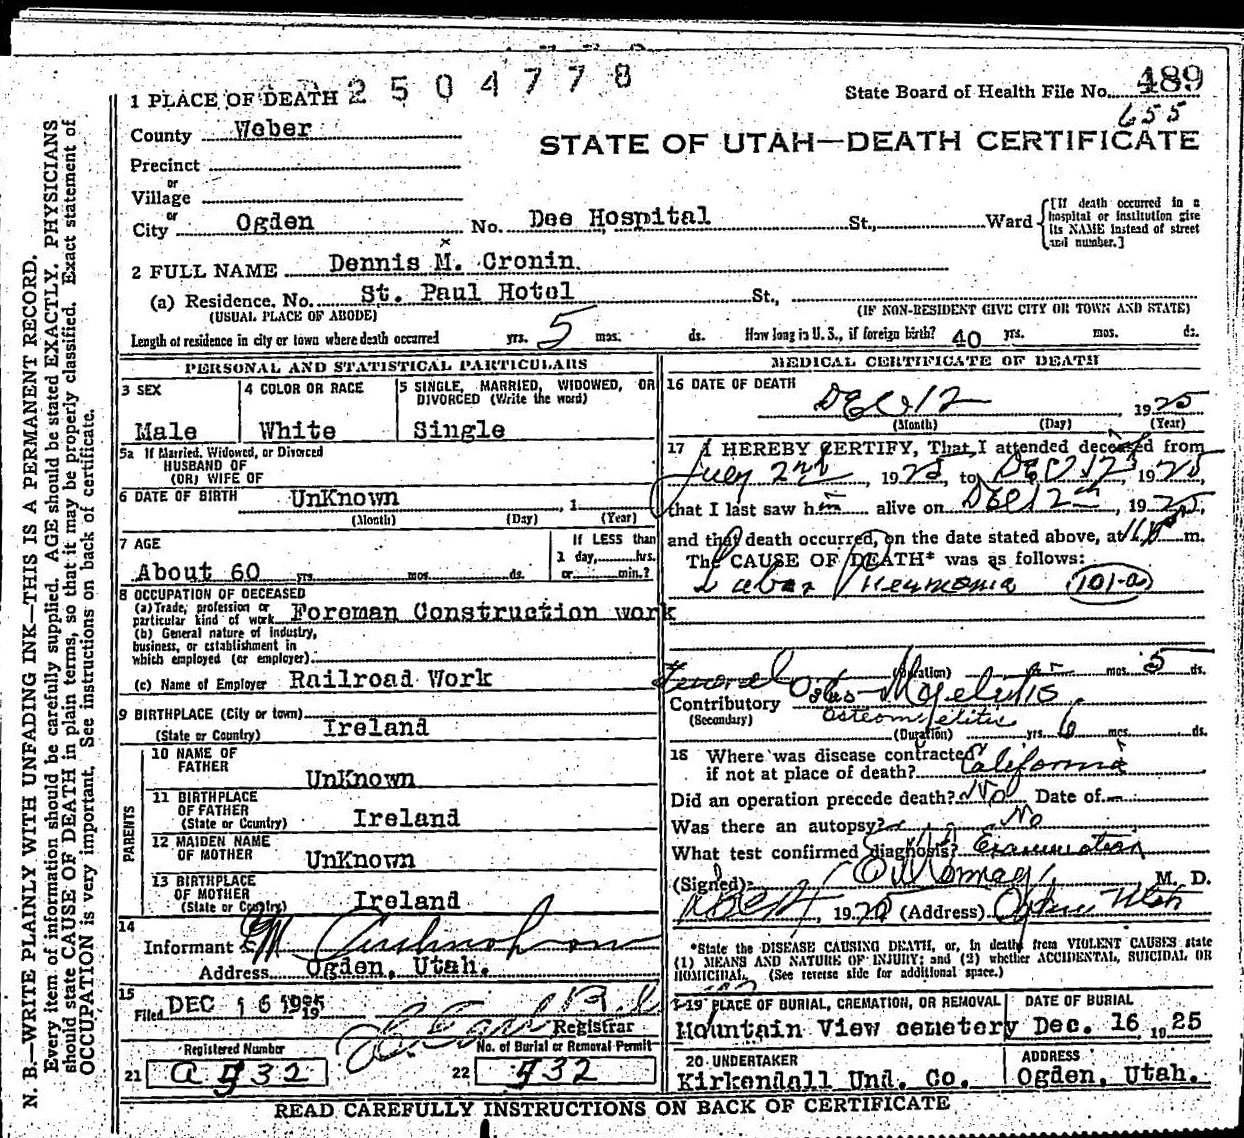 2504778
1 PLACE OF DEATH
State Board of Health File No. 489
655
County Weber
STATE OF UTAH—DEATH CERTIFICATE
Precinct
or
Village
or
City Ogden No. Dee Hospital St., Ward
[If death occurred in a hospital or institution give its NAME instead of street and number.]
2 FULL NAME Dennis M. Cronin.
(a) Residence. No. St. Paul Hotel St.,
(USUAL PLACE OF ABODE) (IF NON-RESIDENT GIVE CITY OR TOWN AND STATE)
Length of residence in city or town where death occurred yrs. 5 mos. ds. How long in U. S., if foreign birth? 40 yrs. mos. ds.
PERSONAL AND STATISTICAL PARTICULARS
3 SEX
Male
4 COLOR OR RACE
White
5 SINGLE, MARRIED, WIDOWED, OR
DIVORCED (Write the word)
Single
5a If Married, Widowed, or Divorced
HUSBAND OF
(OR) WIFE OF
6 DATE OF BIRTH UnKnown , 1
(Month) (Day) (Year)
7 AGE
About 60 yrs. mos. ds.
If LESS than
1 day, hrs.
or min.?
8 OCCUPATION OF DECEASED
(a) Trade, profession or
particular kind of work Foreman Construction work
(b) General nature of industry,
business, or establishment in
which employed (or employer)
(c) Name of Employer Railroad Work
9 BIRTHPLACE (City or town)
(State or Country) Ireland
PARENTS
10 NAME OF
FATHER UnKnown
11 BIRTHPLACE
OF FATHER
(State or Country) Ireland
12 MAIDEN NAME
OF MOTHER UnKnown
13 BIRTHPLACE
OF MOTHER
(State or Country) Ireland
14
Informant
Address Ogden, Utah.
15
Filed DEC 16 1925
Registrar
Registered Number
21 a 532
No. of Burial or Removal Permit
22 532
MEDICAL CERTIFICATE OF DEATH
16 DATE OF DEATH
Dec 12 , 1925
(Month) (Day) (Year)
17 I HEREBY CERTIFY, That I attended deceased from
July 2nd , 1925, to Dec 12, 1925
that I last saw him alive on Dec 12th , 1925,
and that death occurred, on the date stated above, at m.
The CAUSE OF DEATH* was as follows:
Lobar Pneumonia 101-a
(Duration) yrs. mos. 5 ds.
Contributory Osteo-Myelitis
(Secondary) Osteomyelitis
(Duration) yrs. 6 mos. ds.
18 Where was disease contracted
if not at place of death? California
Did an operation precede death? No Date of
Was there an autopsy? No
What test confirmed diagnosis? Examination
(Signed) M. D.
, 19 (Address) Ogden Utah
*State the DISEASE CAUSING DEATH, or, in death from VIOLENT CAUSES state
(1) MEANS AND NATURE OF INJURY; and (2) whether ACCIDENTAL, SUICIDAL OR
HOMICIDAL. (See reverse side for additional space.)
19 PLACE OF BURIAL, CREMATION, OR REMOVAL
Mountain View cemetery
DATE OF BURIAL
Dec. 16, 1925
20 UNDERTAKER
Kirkendall Und. Co.
ADDRESS
Ogden, Utah.
READ CAREFULLY INSTRUCTIONS ON BACK OF CERTIFICATE
N. B.—WRITE PLAINLY WITH UNFADING INK—THIS IS A PERMANENT RECORD.
Every item of information should be carefully supplied. AGE should be stated EXACTLY. PHYSICIANS
should state CAUSE OF DEATH in plain terms, so that it may be properly classified. Exact statement of
OCCUPATION is very important. See instructions on back of certificate.